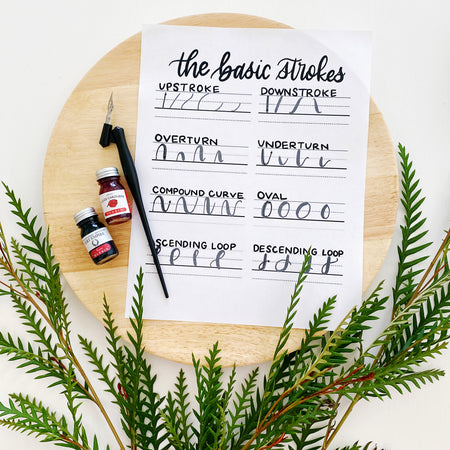 the basic strokes
UPSTROKE
DOWNSTROKE
OVERTURN
UNDERTURN
COMPOUND CURVE
OVAL
SCENDING LOOP
DESCENDING LOOP